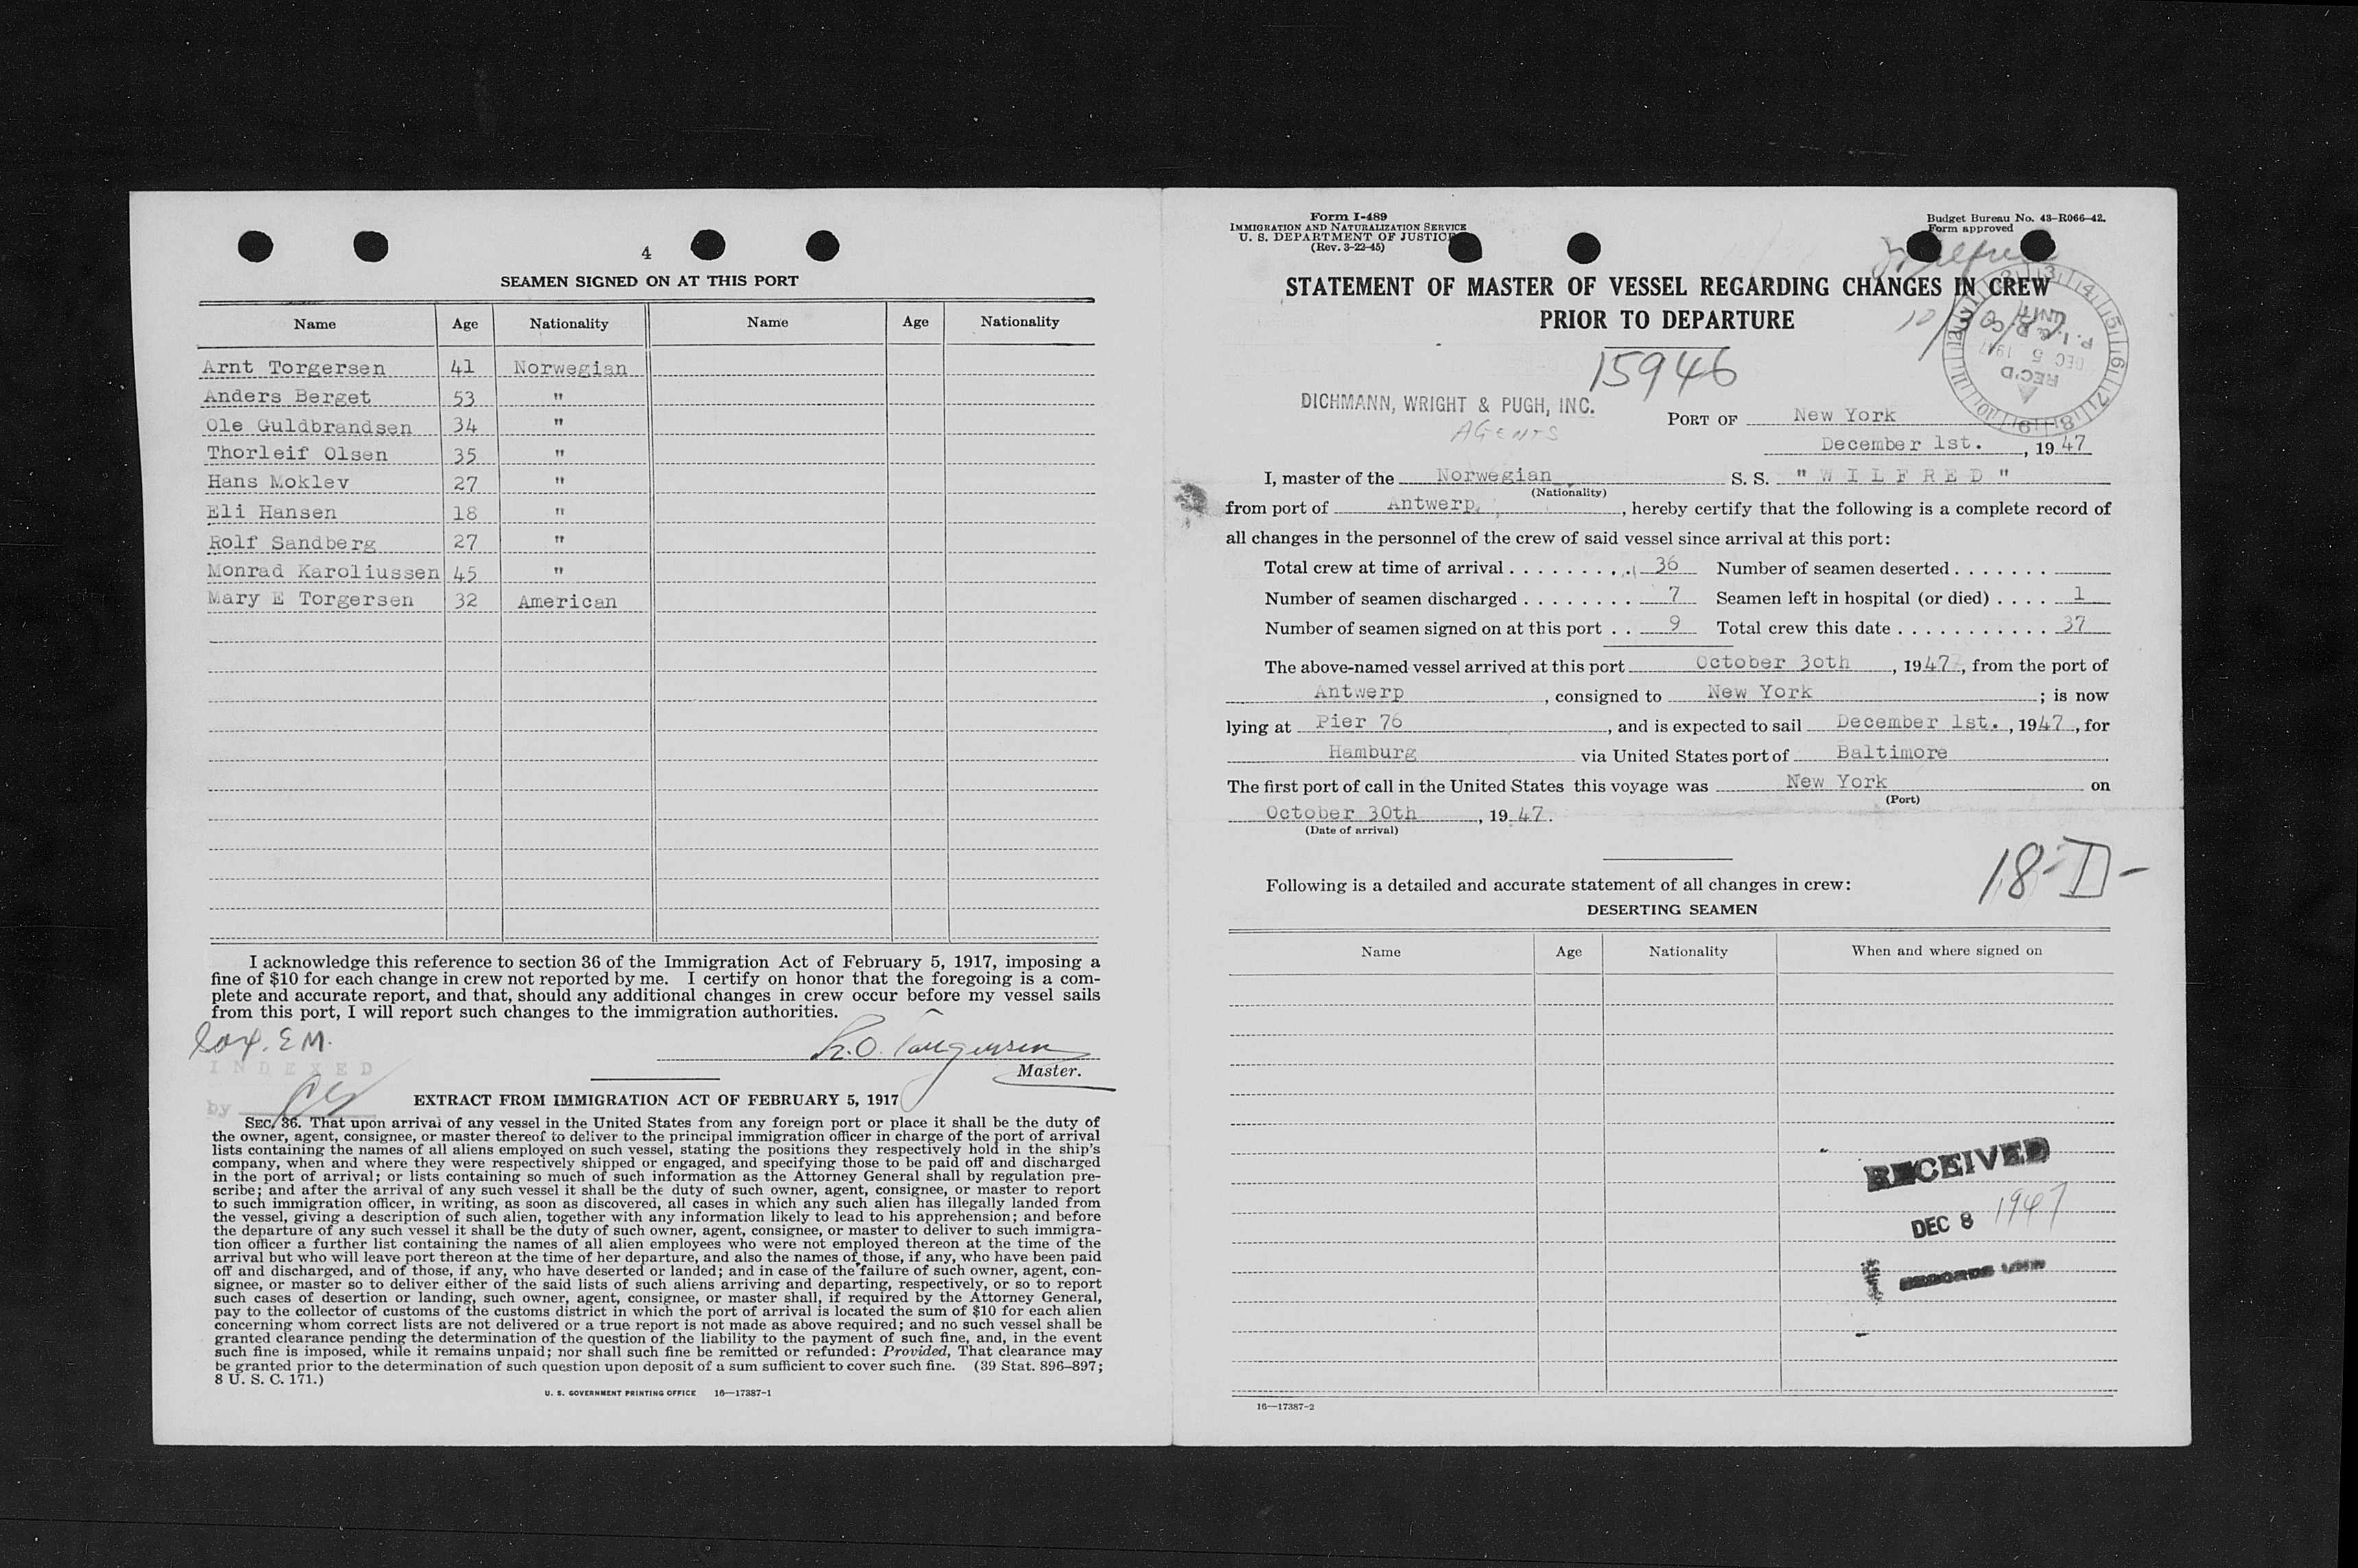 4
SEAMEN SIGNED ON AT THIS PORT
Name Age Nationality Name Age Nationality
Arnt Torgersen 41 Norwegian
Anders Berget 53 "
Ole Guldbrandsen 34 "
Thorleif Olsen 35 "
Hans Moklev 27 "
Eli Hansen 18 "
Rolf Sandberg 27 "
Monrad Karoliussen 45 "
Mary E Torgersen 32 American
I acknowledge this reference to section 36 of the Immigration Act of February 5, 1917, imposing a
fine of $10 for each change in crew not reported by me. I certify on honor that the foregoing is a com-
plete and accurate report, and that, should any additional changes in crew occur before my vessel sails
from this port, I will report such changes to the immigration authorities.
E M.
INDEXED
by
Master.
EXTRACT FROM IMMIGRATION ACT OF FEBRUARY 5, 1917
SEC. 36. That upon arrival of any vessel in the United States from any foreign port or place it shall be the duty of
the owner, agent, consignee, or master thereof to deliver to the principal immigration officer in charge of the port of arrival
lists containing the names of all aliens employed on such vessel, stating the positions they respectively hold in the ship's
company, when and where they were respectively shipped or engaged, and specifying those to be paid off and discharged
in the port of arrival; or lists containing so much of such information as the Attorney General shall by regulation pre-
scribe; and after the arrival of any such vessel it shall be the duty of such owner, agent, consignee, or master to report
to such immigration officer, in writing, as soon as discovered, all cases in which any such alien has illegally landed from
the vessel, giving a description of such alien, together with any information likely to lead to his apprehension; and before
the departure of any such vessel it shall be the duty of such owner, agent, consignee, or master to deliver to such immigra-
tion officer a further list containing the names of all alien employees who were not employed thereon at the time of the
arrival but who will leave port thereon at the time of her departure, and also the names of those, if any, who have been paid
off and discharged, and of those, if any, who have deserted or landed; and in case of the failure of such owner, agent, con-
signee, or master so to deliver either of the said lists of such aliens arriving and departing, respectively, or so to report
such cases of desertion or landing, such owner, agent, consignee, or master shall, if required by the Attorney General,
pay to the collector of customs of the customs district in which the port of arrival is located the sum of $10 for each alien
concerning whom correct lists are not delivered or a true report is not made as above required; and no such vessel shall be
granted clearance pending the determination of the question of the liability to the payment of such fine, and, in the event
such fine is imposed, while it remains unpaid; nor shall such fine be remitted or refunded: Provided, That clearance may
be granted prior to the determination of such question upon deposit of a sum sufficient to cover such fine. (39 Stat. 896–897;
8 U. S. C. 171.)
U. S. GOVERNMENT PRINTING OFFICE 16—17387-1
Form I-489
IMMIGRATION AND NATURALIZATION SERVICE
U. S. DEPARTMENT OF JUSTICE
(Rev. 3-22-45)
Budget Bureau No. 43–R066–42.
Form approved
Wilfred
STATEMENT OF MASTER OF VESSEL REGARDING CHANGES IN CREW
PRIOR TO DEPARTURE
P. I. & R. CO.
UNIT
DEC 5 1947
REC'D
15946
DICHMANN, WRIGHT & PUGH, INC.
AGENTS
PORT OF New York
December 1st., 1947
I, master of the Norwegian S. S. "WILFRED"
(Nationality)
from port of Antwerp, hereby certify that the following is a complete record of
all changes in the personnel of the crew of said vessel since arrival at this port:
Total crew at time of arrival . . . . . . . . . 36 Number of seamen deserted . . . . . . .
Number of seamen discharged . . . . . . . . 7 Seamen left in hospital (or died) . . . . 1
Number of seamen signed on at this port . . 9 Total crew this date . . . . . . . . . . . . 37
The above-named vessel arrived at this port October 3oth, 1947, from the port of
Antwerp, consigned to New York; is now
lying at Pier 76, and is expected to sail December 1st., 1947, for
Hamburg via United States port of Baltimore
The first port of call in the United States this voyage was New York on
(Port)
October 30th, 1947.
(Date of arrival)
18-D-
Following is a detailed and accurate statement of all changes in crew:
DESERTING SEAMEN
Name Age Nationality When and where signed on
RECEIVED
DEC 8 1947
RECORDS UNIT
16—17387-2